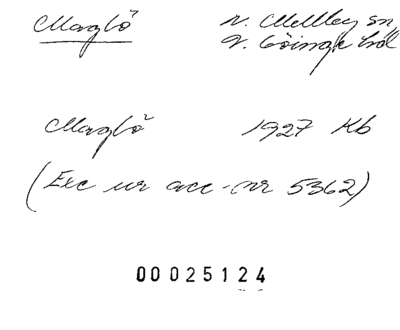 Maglö N. Mellby sn,
V. Göinge hd
Maglö 1927 Kb
(Exc ur acc.-nr 5362)
00025124